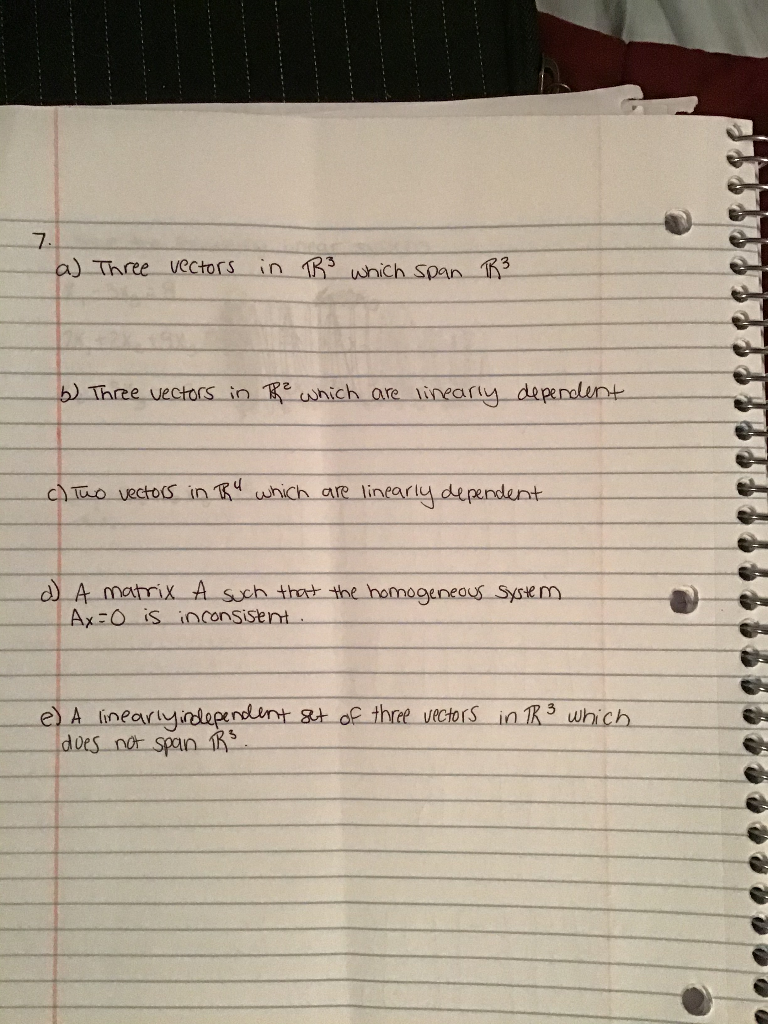 7.
a) Three vectors in ℝ³ which span ℝ³
b) Three vectors in ℝ² which are linearly dependent
c) Two vectors in ℝ⁴ which are linearly dependent
d) A matrix A such that the homogeneous system
Ax=0 is inconsistent.
e) A linearly independent set of three vectors in ℝ³ which
does not span ℝ³.